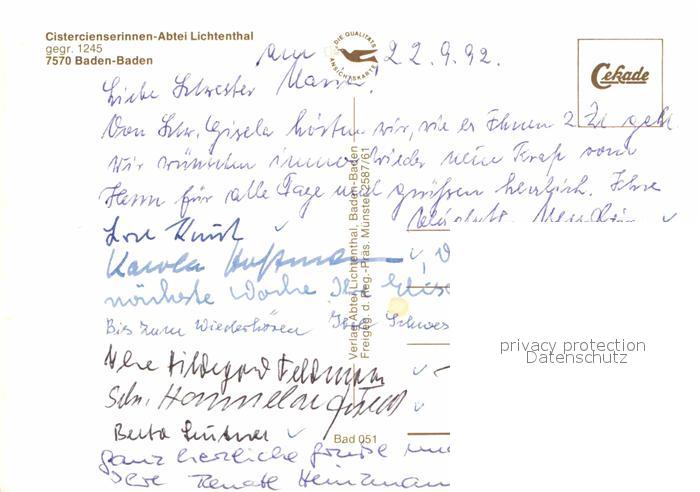 Cistercienserinnen-Abtei Lichtenthal
gegr. 1245
7570 Baden-Baden
DIE QUALITÄTS
ANSICHTSKARTE
Cekade
am 22.9.92.
Liebe Schwester
Von Schw. Gisela hörten wir, wie es Ihnen z Zt geht.
Wir wünschen immer wieder neue Kraft vom
Herrn für alle Tage und grüssen herzlich. Ihre
Karola Hoffmann
nächste Woche Ihr
Bis zum Wiederhören Ihre Schwes
Ihre Hildegard Feldmann
Schw. Hannelore
Berta Lindner
ganz herzliche Grüsse und
Ihre Renate Heinzmann
Verlag Abtei Lichtenthal, Baden-Baden
Freigeg. d. Reg.-Präs. Münster 2587/61
Bad 051
privacy protection
Datenschutz